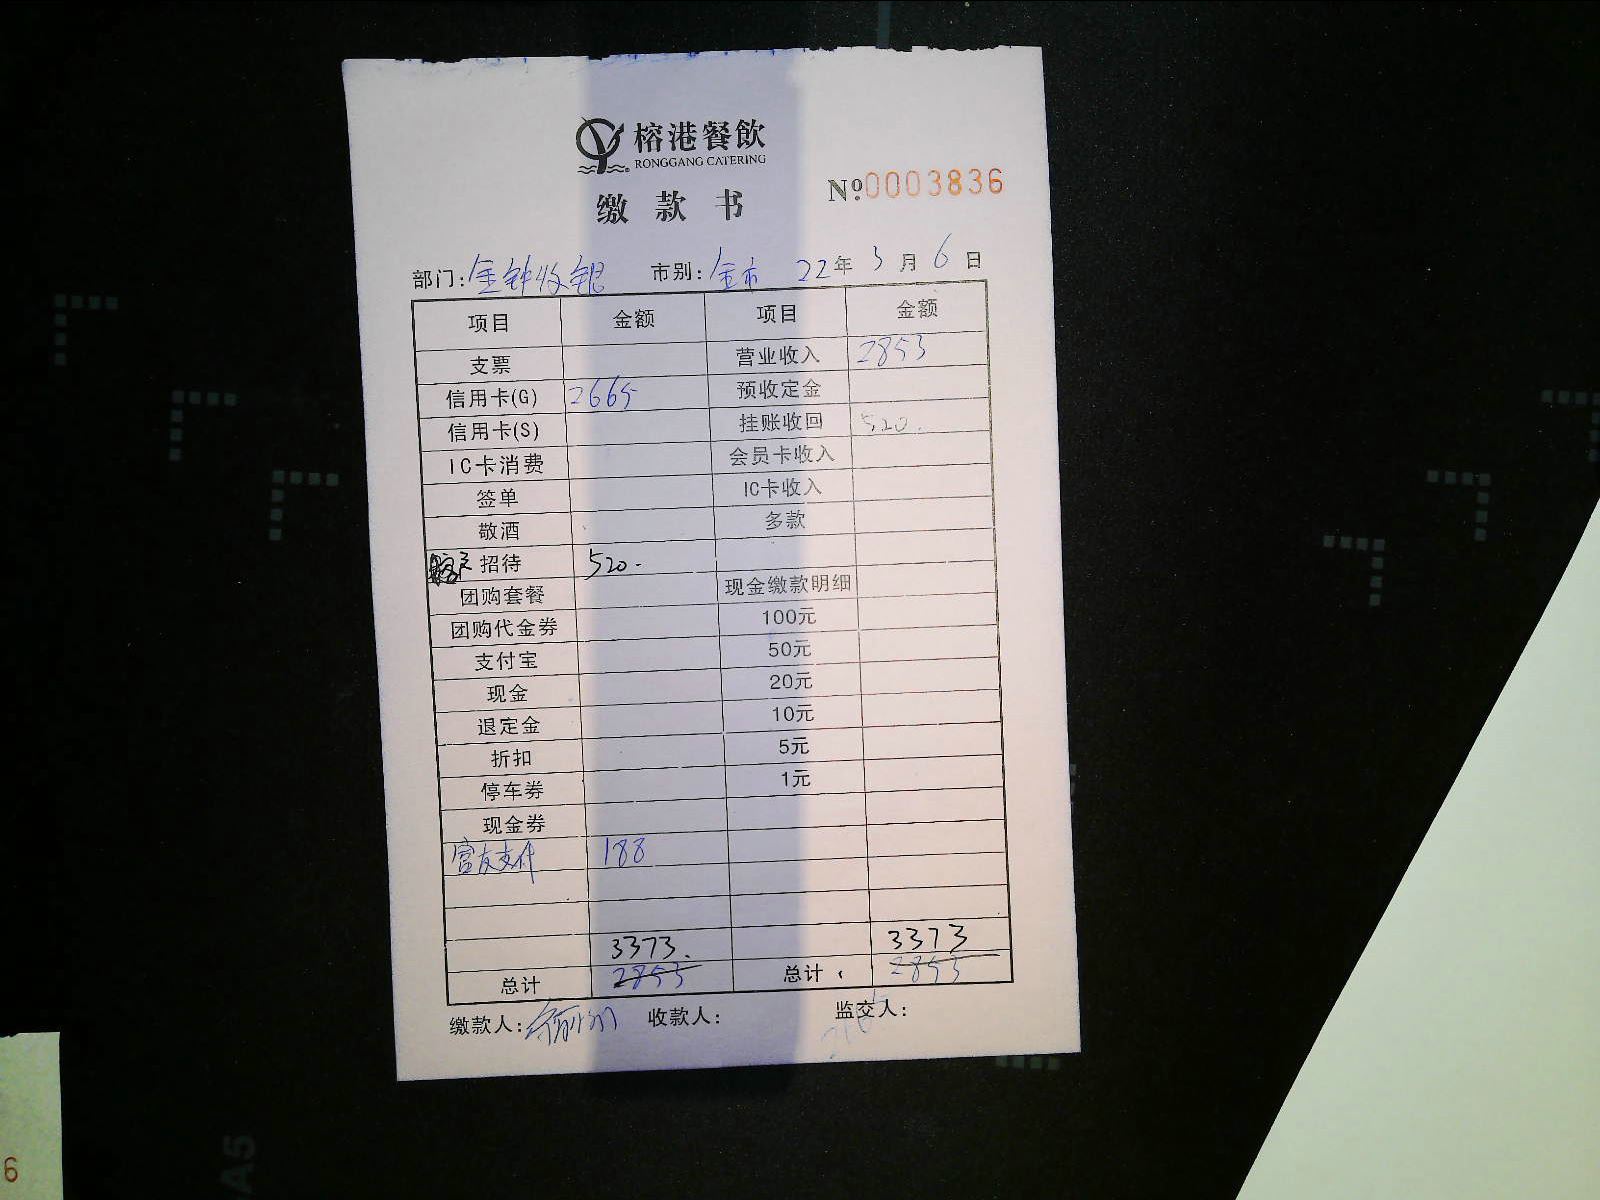 榕港餐飲
RONGGANG CATERING
缴款书
№0003836
部门:金钟收银 市别:全市 22年3月6日
项目 金额 项目 金额
支票 营业收入 2853
信用卡(G) 2665 预收定金
信用卡(S) 挂账收回 520.
IC卡消费 会员卡收入
签单 IC卡收入
敬酒 多款
招待 520.
团购套餐 现金缴款明细
团购代金券 100元
支付宝 50元
现金 20元
退定金 10元
折扣 5元
停车券 1元
现金券
富友支付 188
3373. 3373
总计 2853 总计 2853
缴款人: 收款人: 监交人:
A5
6